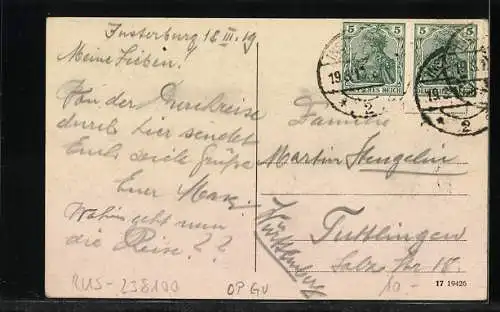 Insterburg 18 III. 19
Meine Lieben!
Von der Durchreise
durch hier sendet
Euch viele Grüße
Euer Max.
Wohin geht nun
die Reise??
5 5
DEUTSCHES REICH
2
2
Familie
Martin Stengelin
Tuttlingen
Württemberg
RUS-238100
OP. GU
10.-
17 19426